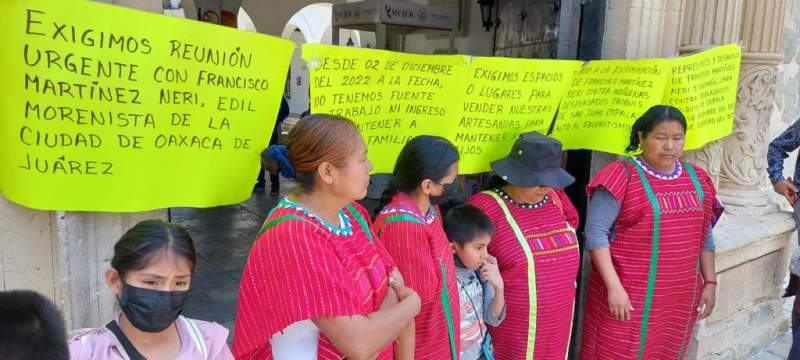 EXIGIMOS REUNIÓN
URGENTE CON FRANCISCO
MARTÍNEZ NERI, EDIL
MORENISTA DE LA
CIUDAD DE OAXACA DE
JUÁREZ
DESDE 02 DE DICIEMBRE
DEL 2022 A LA FECHA,
NO TENEMOS FUENTE
TRABAJO NI INGRESO
MANTENER A
FAMILIA
EXIGIMOS ESPACIOS
O LUGARES PARA
VENDER NUESTRAS
ARTESANÍAS Y
MANTENER A
HIJOS
A LA DISCRIMINACIÓN
DE FRANCISCO MARTÍNEZ
NERI CONTRA INDÍGENAS
DESPLAZADOS TRIQUIS
DE SAN JUAN COPALA
ALTO AL FAVORITISMO
REPRESIÓN Y DESALOJO
DE FRANCISCO MARTÍNEZ
NERI
CONTRA
COPALA